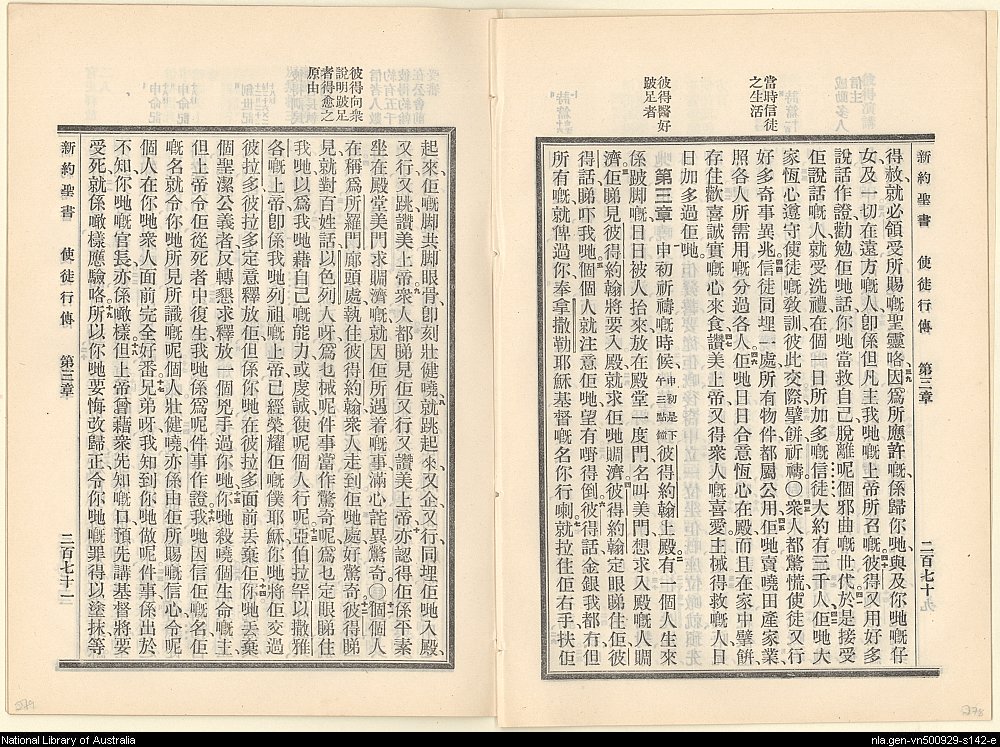 新約聖書 使徒行傳 第三章 二百七十
當時信徒
之生活
彼得醫好
跛足者
得赦、就必領受所賜嘅聖靈咯、因爲所應許嘅、係歸你哋、與及你哋嘅仔
女、及一切在遠方嘅人、卽係但凡主我哋嘅上帝所召嘅、彼得又用好多
說話作證勸勉佢哋話、你哋當救自己、脫離呢個邪曲嘅世代、於是接受
佢說話嘅人、就受洗禮、在個一日所加多嘅信徒、大約有三千人、佢哋大
家恆心遵守使徒嘅敎訓、彼此交際、擘餅祈禱。○衆人都驚慌、使徒又行
好多奇事異兆、信徒同埋一處、所有物件、都屬公用、佢哋賣曉田產家業、
照各人所需用嘅、分過各人、佢哋日日合意恆心在殿、而且在家中擘餅、
存住歡喜誠實嘅心來食、讚美上帝、又得衆人嘅喜愛、主㨢得救嘅人、日
日加多過佢哋。
第三章 申初祈禱嘅時候、申初是下午三點鐘彼得約翰上殿、有一個人、生來
係跛脚嘅、日日被人抬來、放在殿堂一度門、名叫美門、想求入殿嘅人賙
濟、佢睇見彼得約翰將要入殿、就求佢哋賙濟、彼得約翰定眼睇住佢、彼
得話、睇吓我哋、個個人就注意佢哋、望有嘢得倒、彼得話、金銀我都冇、但
所有嘅、就俾過你、奉拿撒勒耶穌基督嘅名、你行喇、就拉住佢右手、扶佢
彼得向衆
說明跛足
者得愈之
原由
起來、佢嘅脚共脚眼骨、卽刻壯健曉、就跳起來、又企、又行、同埋佢哋入殿、
又行、又跳、讚美上帝、衆人都睇見佢又行、又讚美上帝、亦認得佢係平素
坐在殿堂美門求賙濟嘅、就因佢所遇着嘅事、滿心詫異驚奇。○個個人
在稱爲所羅門廊頭處、執住彼得約翰、衆人走到佢哋處、好驚奇、彼得睇
見、就對百姓話、以色列人呀、爲乜㨢呢件事當作驚奇呢、爲乜定眼睇住
我哋、以爲我哋藉自己嘅能力或虔誠、使呢個人行呢、亞伯拉罕以撒雅
各嘅上帝、卽係我哋列祖嘅上帝、已經榮耀佢嘅僕耶穌、你哋將佢交過
彼拉多、彼拉多定意釋放佢、但係你哋在彼拉多面前丟棄佢、你哋丟棄
個聖潔公義者、反轉懇求釋放一個兇手過你哋、你哋殺曉個生命嘅主、
但上帝令佢從死者中復生、我哋係爲呢件事作證、我哋因信佢嘅名、佢
嘅名就令你哋所見所識嘅呢個人壯健曉、亦係由佢所賜嘅信心、令呢
個人在你哋衆人面前完全好番、兄弟呀、我知到你哋做呢件事係出於
不知、你哋嘅官長亦係噉樣、但上帝曾藉衆先知嘅口、預先講基督將要
受死、就係噉樣應驗咯、所以你哋要悔改歸正、令你哋嘅罪得以塗抹、等
新約聖書 使徒行傳 第三章 二百七十一
National Library of Australia
nla.gen-vn500929-s142-e